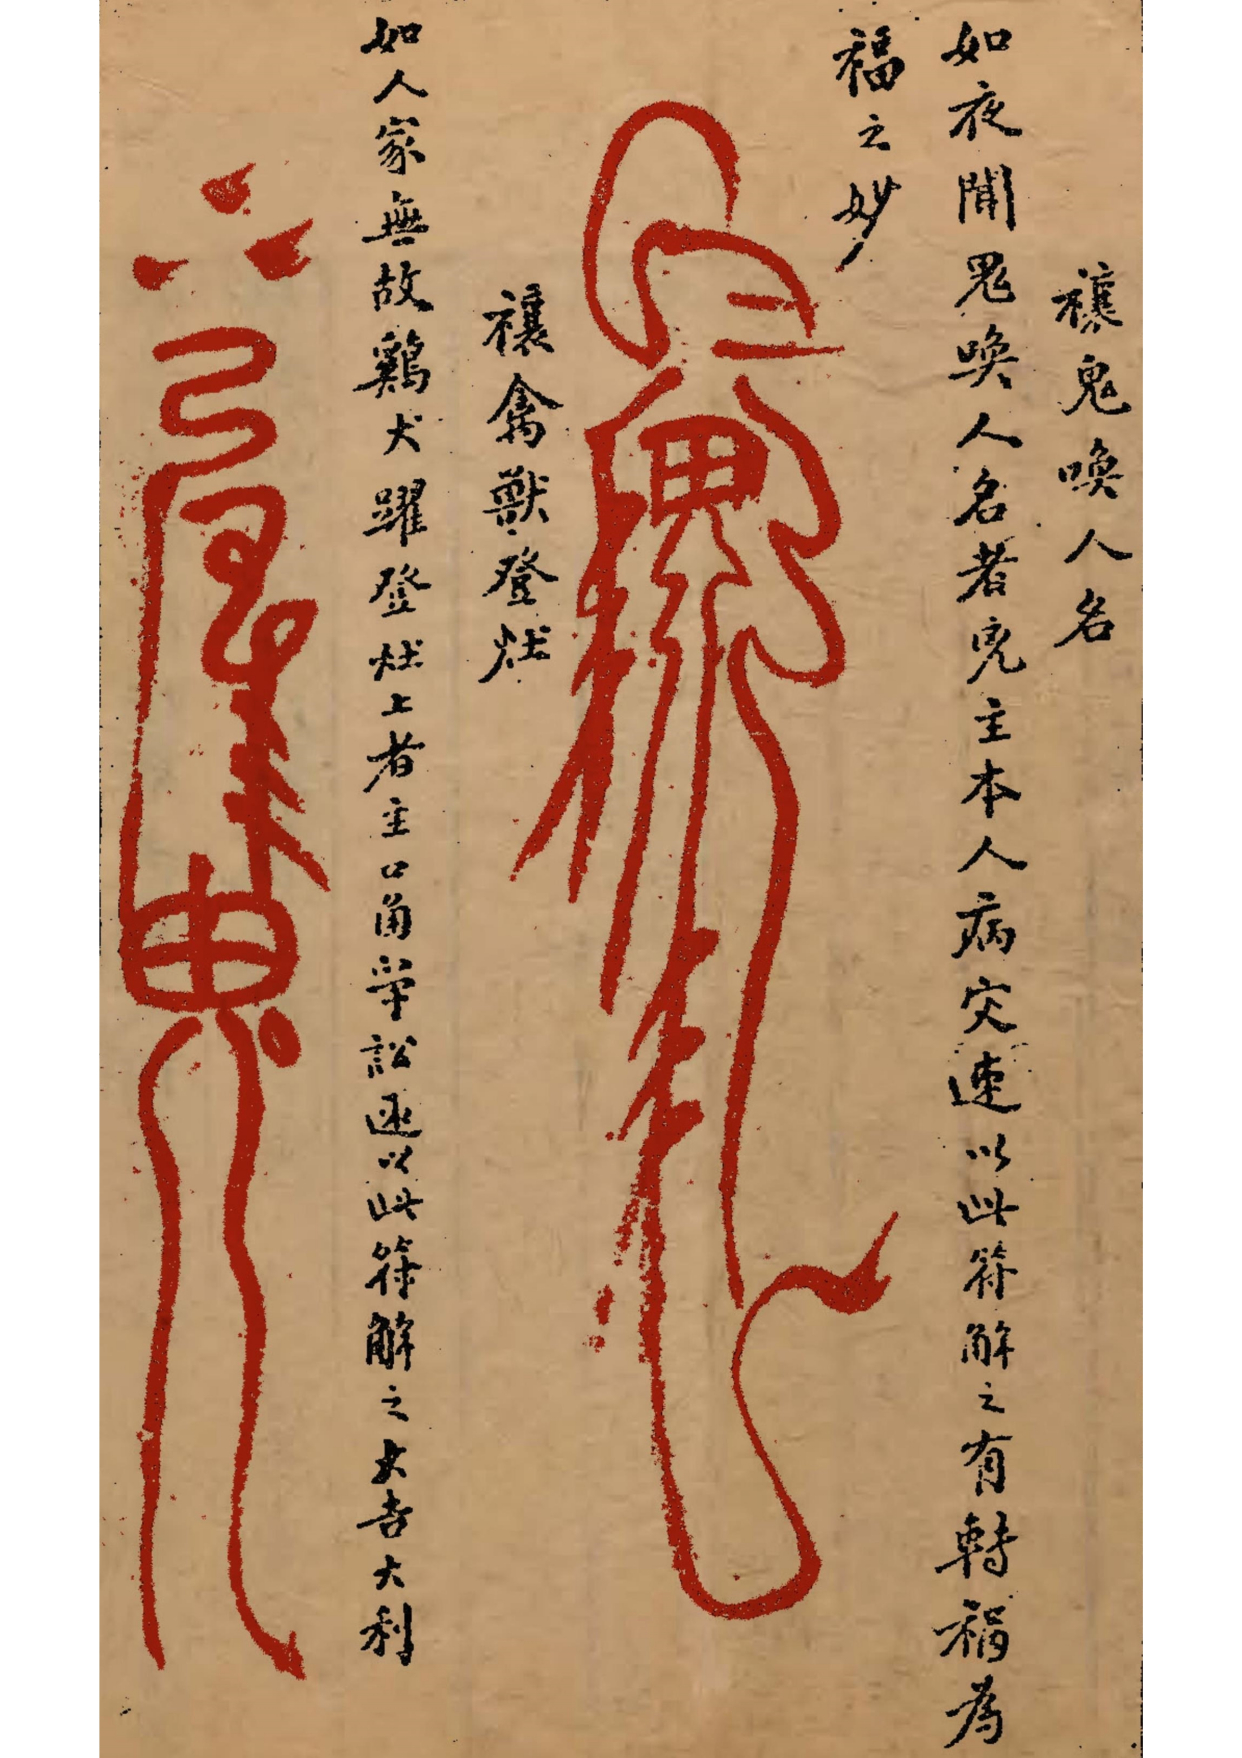 禳鬼喚人名
如夜聞鬼喚人名者鬼主本人病灾速以此符解之有轉禍為
福之妙
禳禽獸登灶
如人家無故鷄犬躍登灶上者主口角爭訟速以此符解之大吉大利